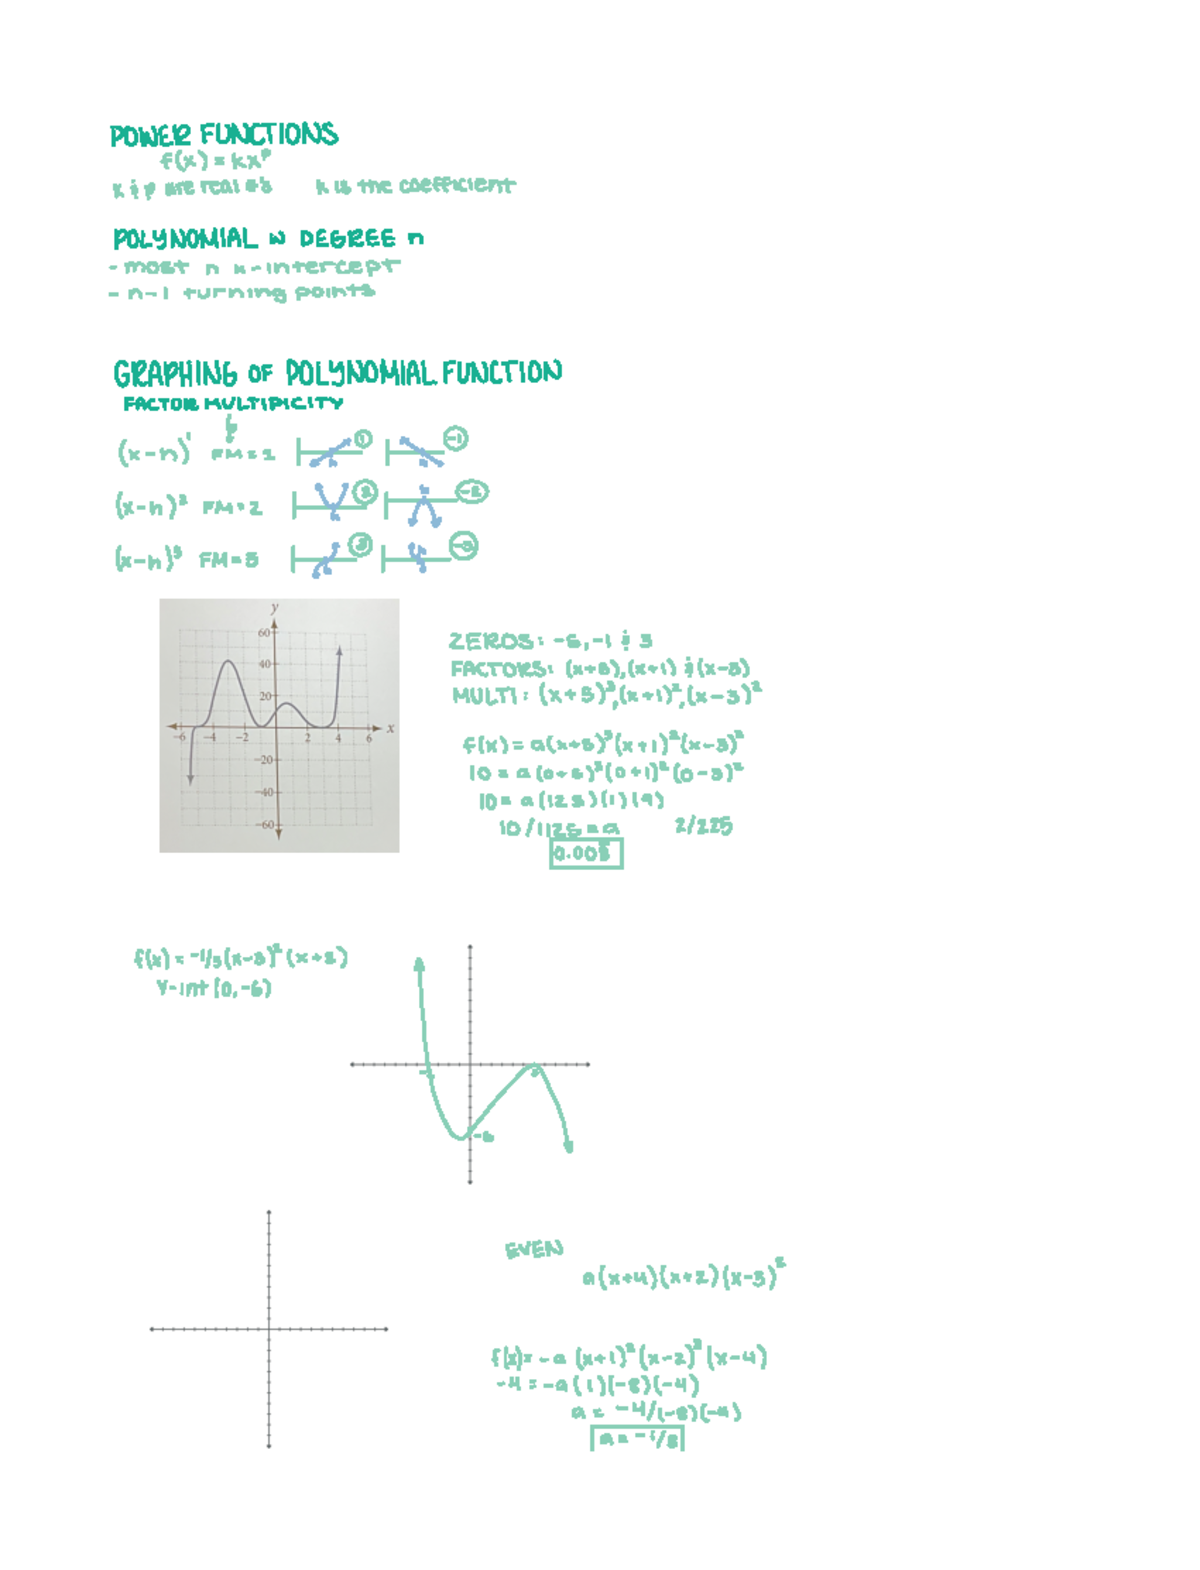 POWER FUNCTIONS
f(x) = kx^p
k & p are real #s   k is the coefficient
POLYNOMIAL w DEGREE n
- most n x-intercept
- n-1 turning points
GRAPHING OF POLYNOMIAL FUNCTION
FACTOR MULTIPICITY
(x-h)^1 FM = 1 1 -1
(x-h)^2 FM = 2 2 -2
(x-h)^3 FM = 3 3 -3
y
60
40
20
-6 -4 -2 2 4 6 x
-20
-40
-60
ZEROS: -5, -1 & 3
FACTORS: (x+5),(x+1) & (x-3)
MULTI: (x+5)^3,(x+1)^2,(x-3)^2
f(x) = a(x+5)^3(x+1)^2(x-3)^2
10 = a(0+5)^3(0+1)^2(0-3)^2
10 = a(125)(1)(9)
10/1125 = a   2/225
0.008
f(x) = -1/3(x-3)^2(x+2)
Y-int (0,-6)
-6
EVEN
a(x+4)(x+2)(x-3)^2
f(x) = -a(x+1)^2(x-2)^3(x-4)
-4 = -a(1)(-8)(-4)
a = -4/(-8)(-4)
a = -1/8